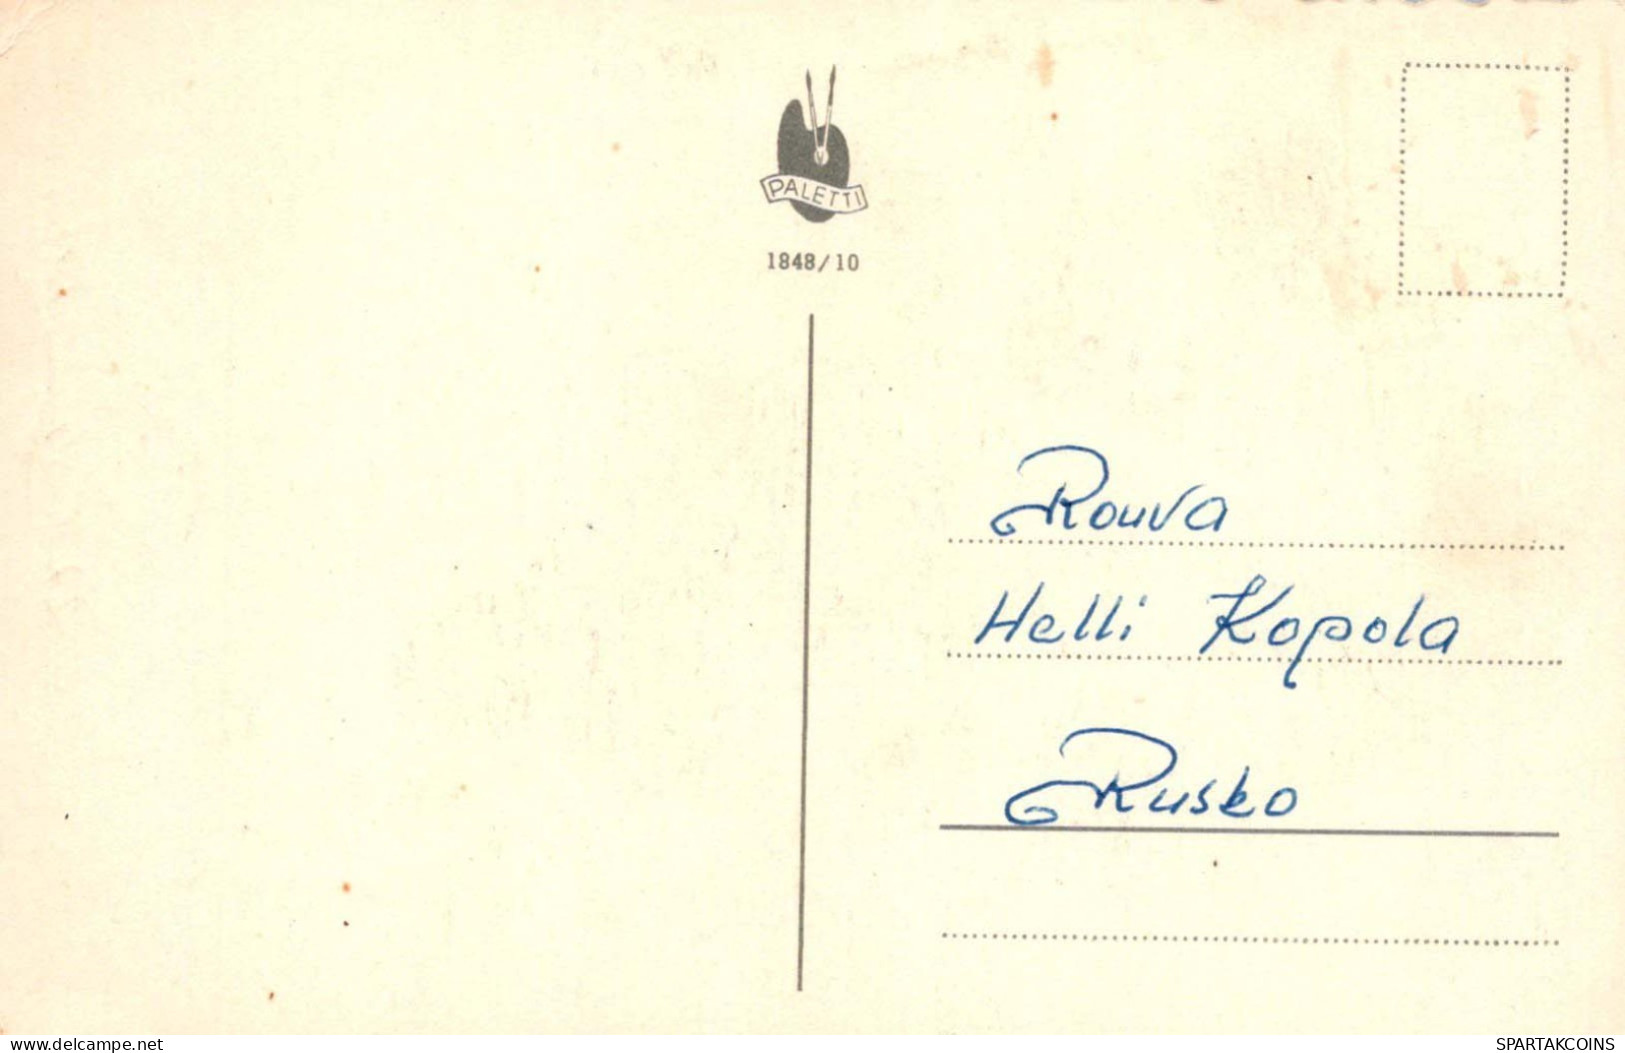 PALETTI
1848/10
Rouva
Helli Kopola
Rusko
delcampe.net
SPARTAKCOINS